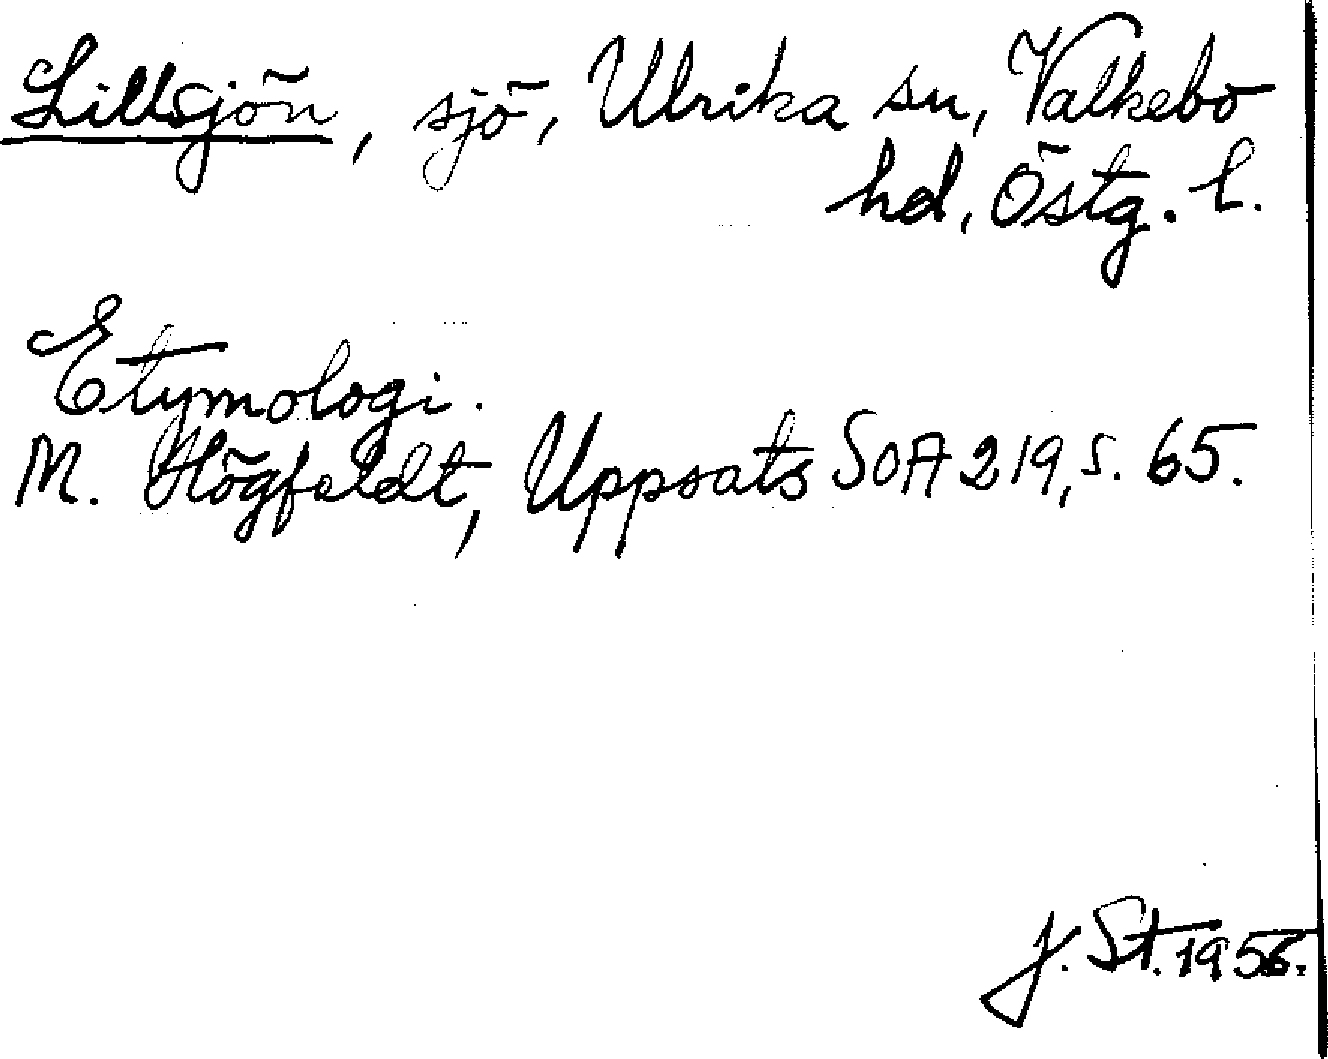 Lillsjön, sjö, Ulrika sn, Valkebo
hd, Östg. l.
Etymologi.
M. Högfeldt, Uppsats SOA 219, s. 65.
J. St. 1956.